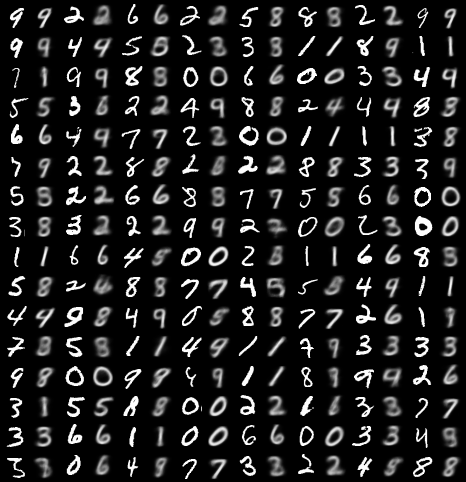 9 9 2 2 6 6 2 2 5 8 8 8 2 2 9 9
9 9 4 4 5 5 2 3 3 8 1 1 8 9 1 1
7 1 9 9 8 8 0 0 6 6 0 0 3 3 4 9
5 5 3 6 2 2 4 9 8 8 2 4 4 4 8 8
6 6 4 9 7 7 2 3 0 0 1 1 1 1 3 8
7 9 2 2 8 8 2 8 2 2 8 8 3 3 3 9
5 8 2 2 6 6 8 8 7 7 5 8 6 6 0 0
3 8 3 2 2 2 9 9 2 7 0 0 2 3 0 0
1 1 6 6 4 5 0 0 2 8 1 1 6 6 8 3
5 8 2 4 8 8 7 7 4 5 5 8 4 9 1 1
4 4 9 8 4 9 0 5 8 8 7 7 2 6 1 1
7 8 5 8 1 1 4 9 1 1 7 9 3 3 3 3
9 8 0 0 9 8 4 9 1 1 8 9 9 4 2 6
3 1 5 5 8 8 0 0 2 2 1 6 3 3 7 7
3 3 6 6 1 1 0 0 6 6 0 0 3 3 4 8
3 3 0 6 4 8 7 7 3 3 2 2 4 5 8 8